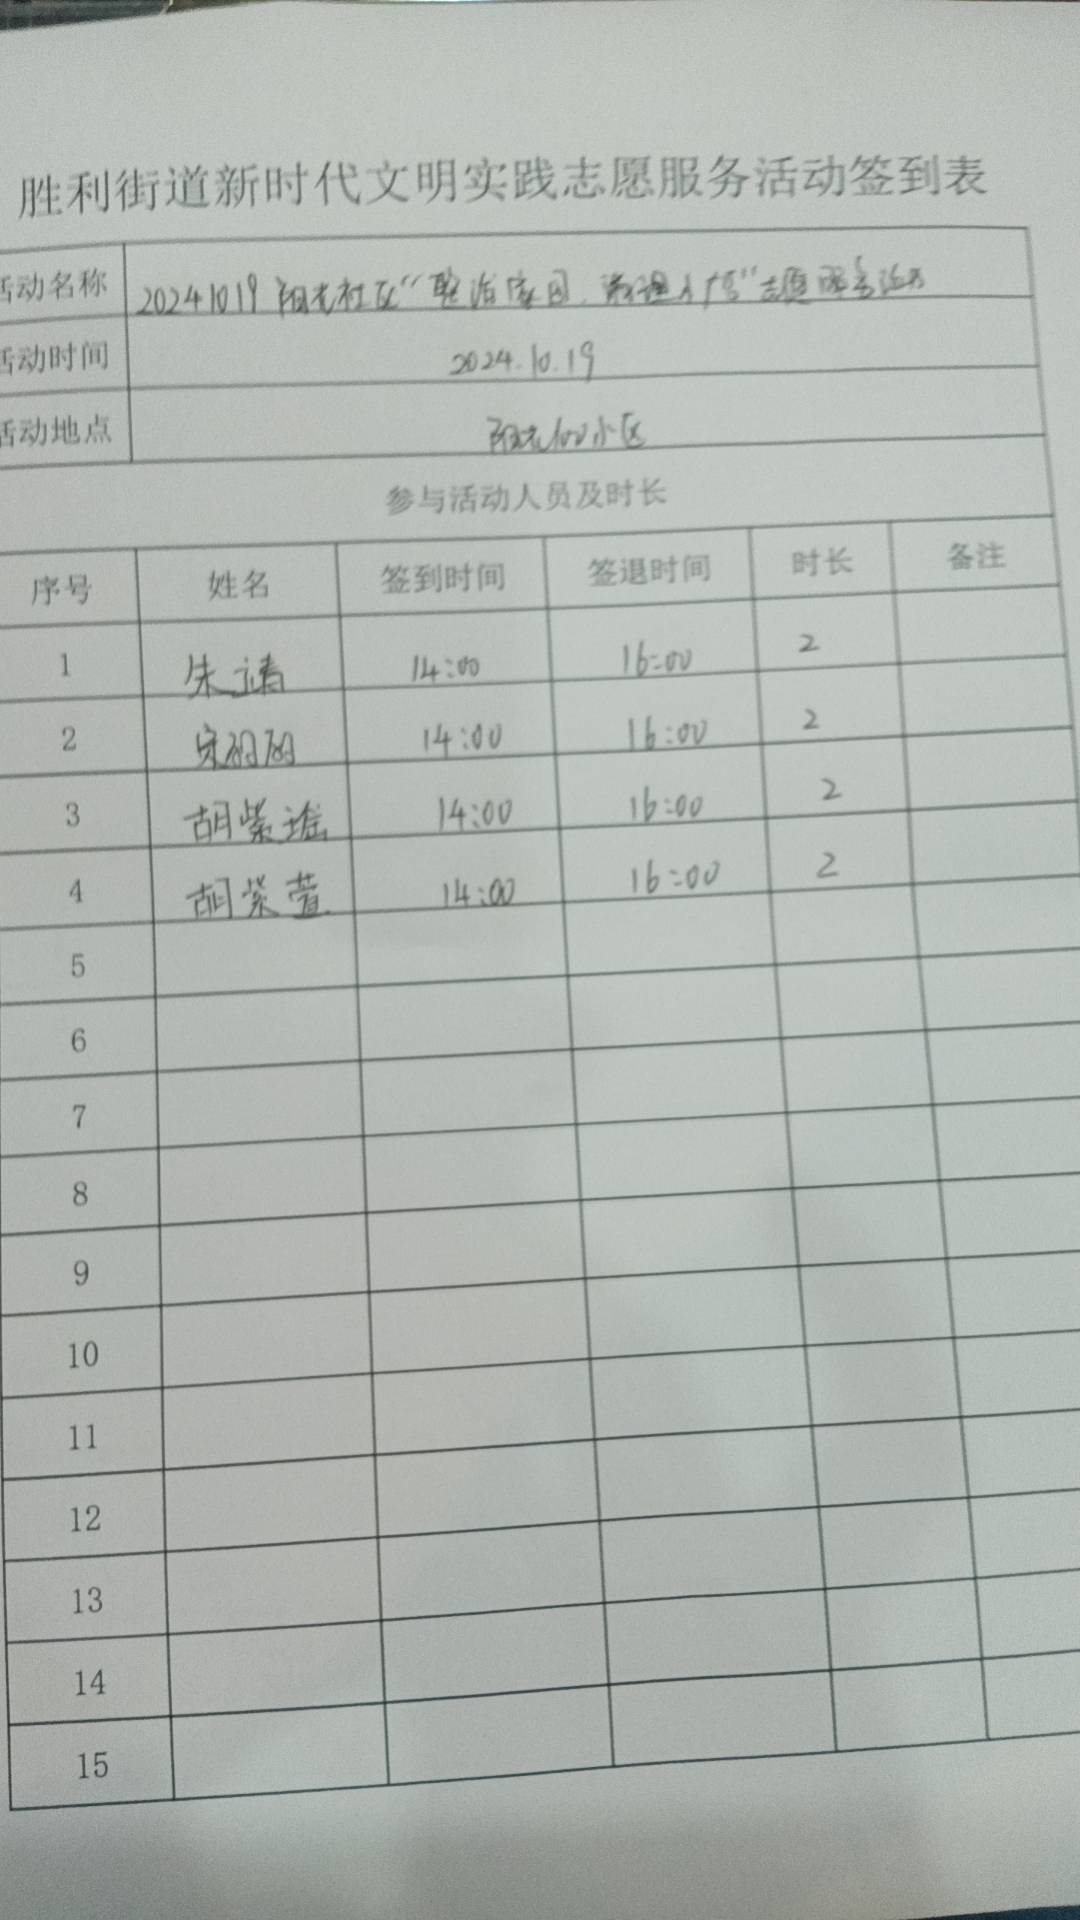 胜利街道新时代文明实践志愿服务活动签到表
活动名称 20241019 阳光社区“ ”志愿服务活动
活动时间 2024.10.19
活动地点 阳光100小区
参与活动人员及时长
序号 姓名 签到时间 签退时间 时长 备注
1 朱靖 14:00 16:00 2
2 宋 14:00 16:00 2
3 胡紫瑶 14:00 16:00 2
4 胡紫萱 14:00 16:00 2
5
6
7
8
9
10
11
12
13
14
15